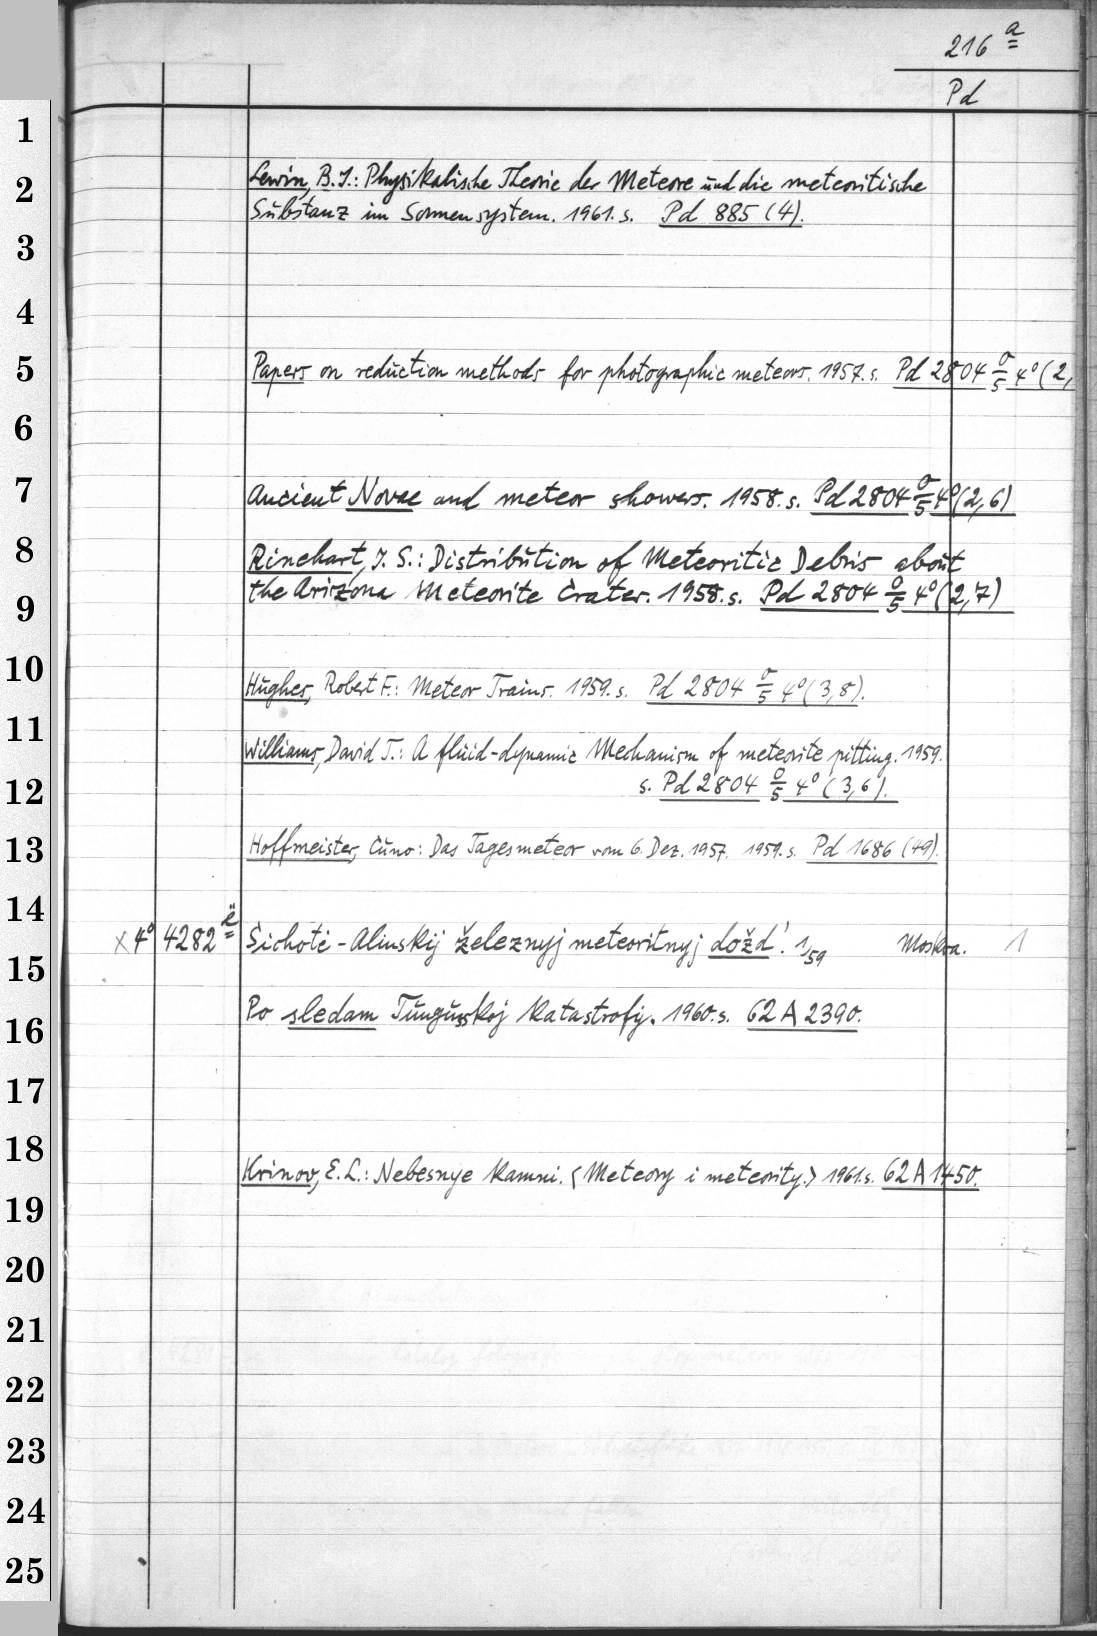 216 a
Pd
1
2
3
4
5
6
7
8
9
10
11
12
13
14
15
16
17
18
19
20
21
22
23
24
25
Lewin, B. J.: Physikalische Theorie der Meteore und die meteoritische
Substanz im Sonnensystem. 1961. s. Pd 885 (4).
Papers on reduction methods for photographic meteors. 1957. s. Pd 2804 σ/5 4° (2,
Ancient Novae and meteor showers. 1958. s. Pd 2804 σ/5 4° (2, 6)
Rinehart, J. S.: Distribution of Meteoritic Debris about
the Arizona Meteorite Crater. 1958. s. Pd 2804 σ/5 4° (2,7)
Hughes, Robert F.: Meteor Trains. 1959. s. Pd 2804 σ/5 4° (3,8).
Williams, David T.: A fluid-dynamic Mechanism of meteorite pitting. 1959.
s. Pd 2804 σ/5 4° (3,6).
Hoffmeister, Cuno: Das Tagesmeteor vom 6. Dez. 1957. 1959. s. Pd 1686 (49).
x 4° 4282 ë Sichote-Alinskij železnyj meteoritnyj dožd'. 1/59 Moskva. 1
Po sledam Tunguskoj Katastrofy. 1960. s. 62 A 2390.
Krinov, E. L.: Nebesnye Kamni. <Meteory i meteority.> 1961. s. 62 A 1450.